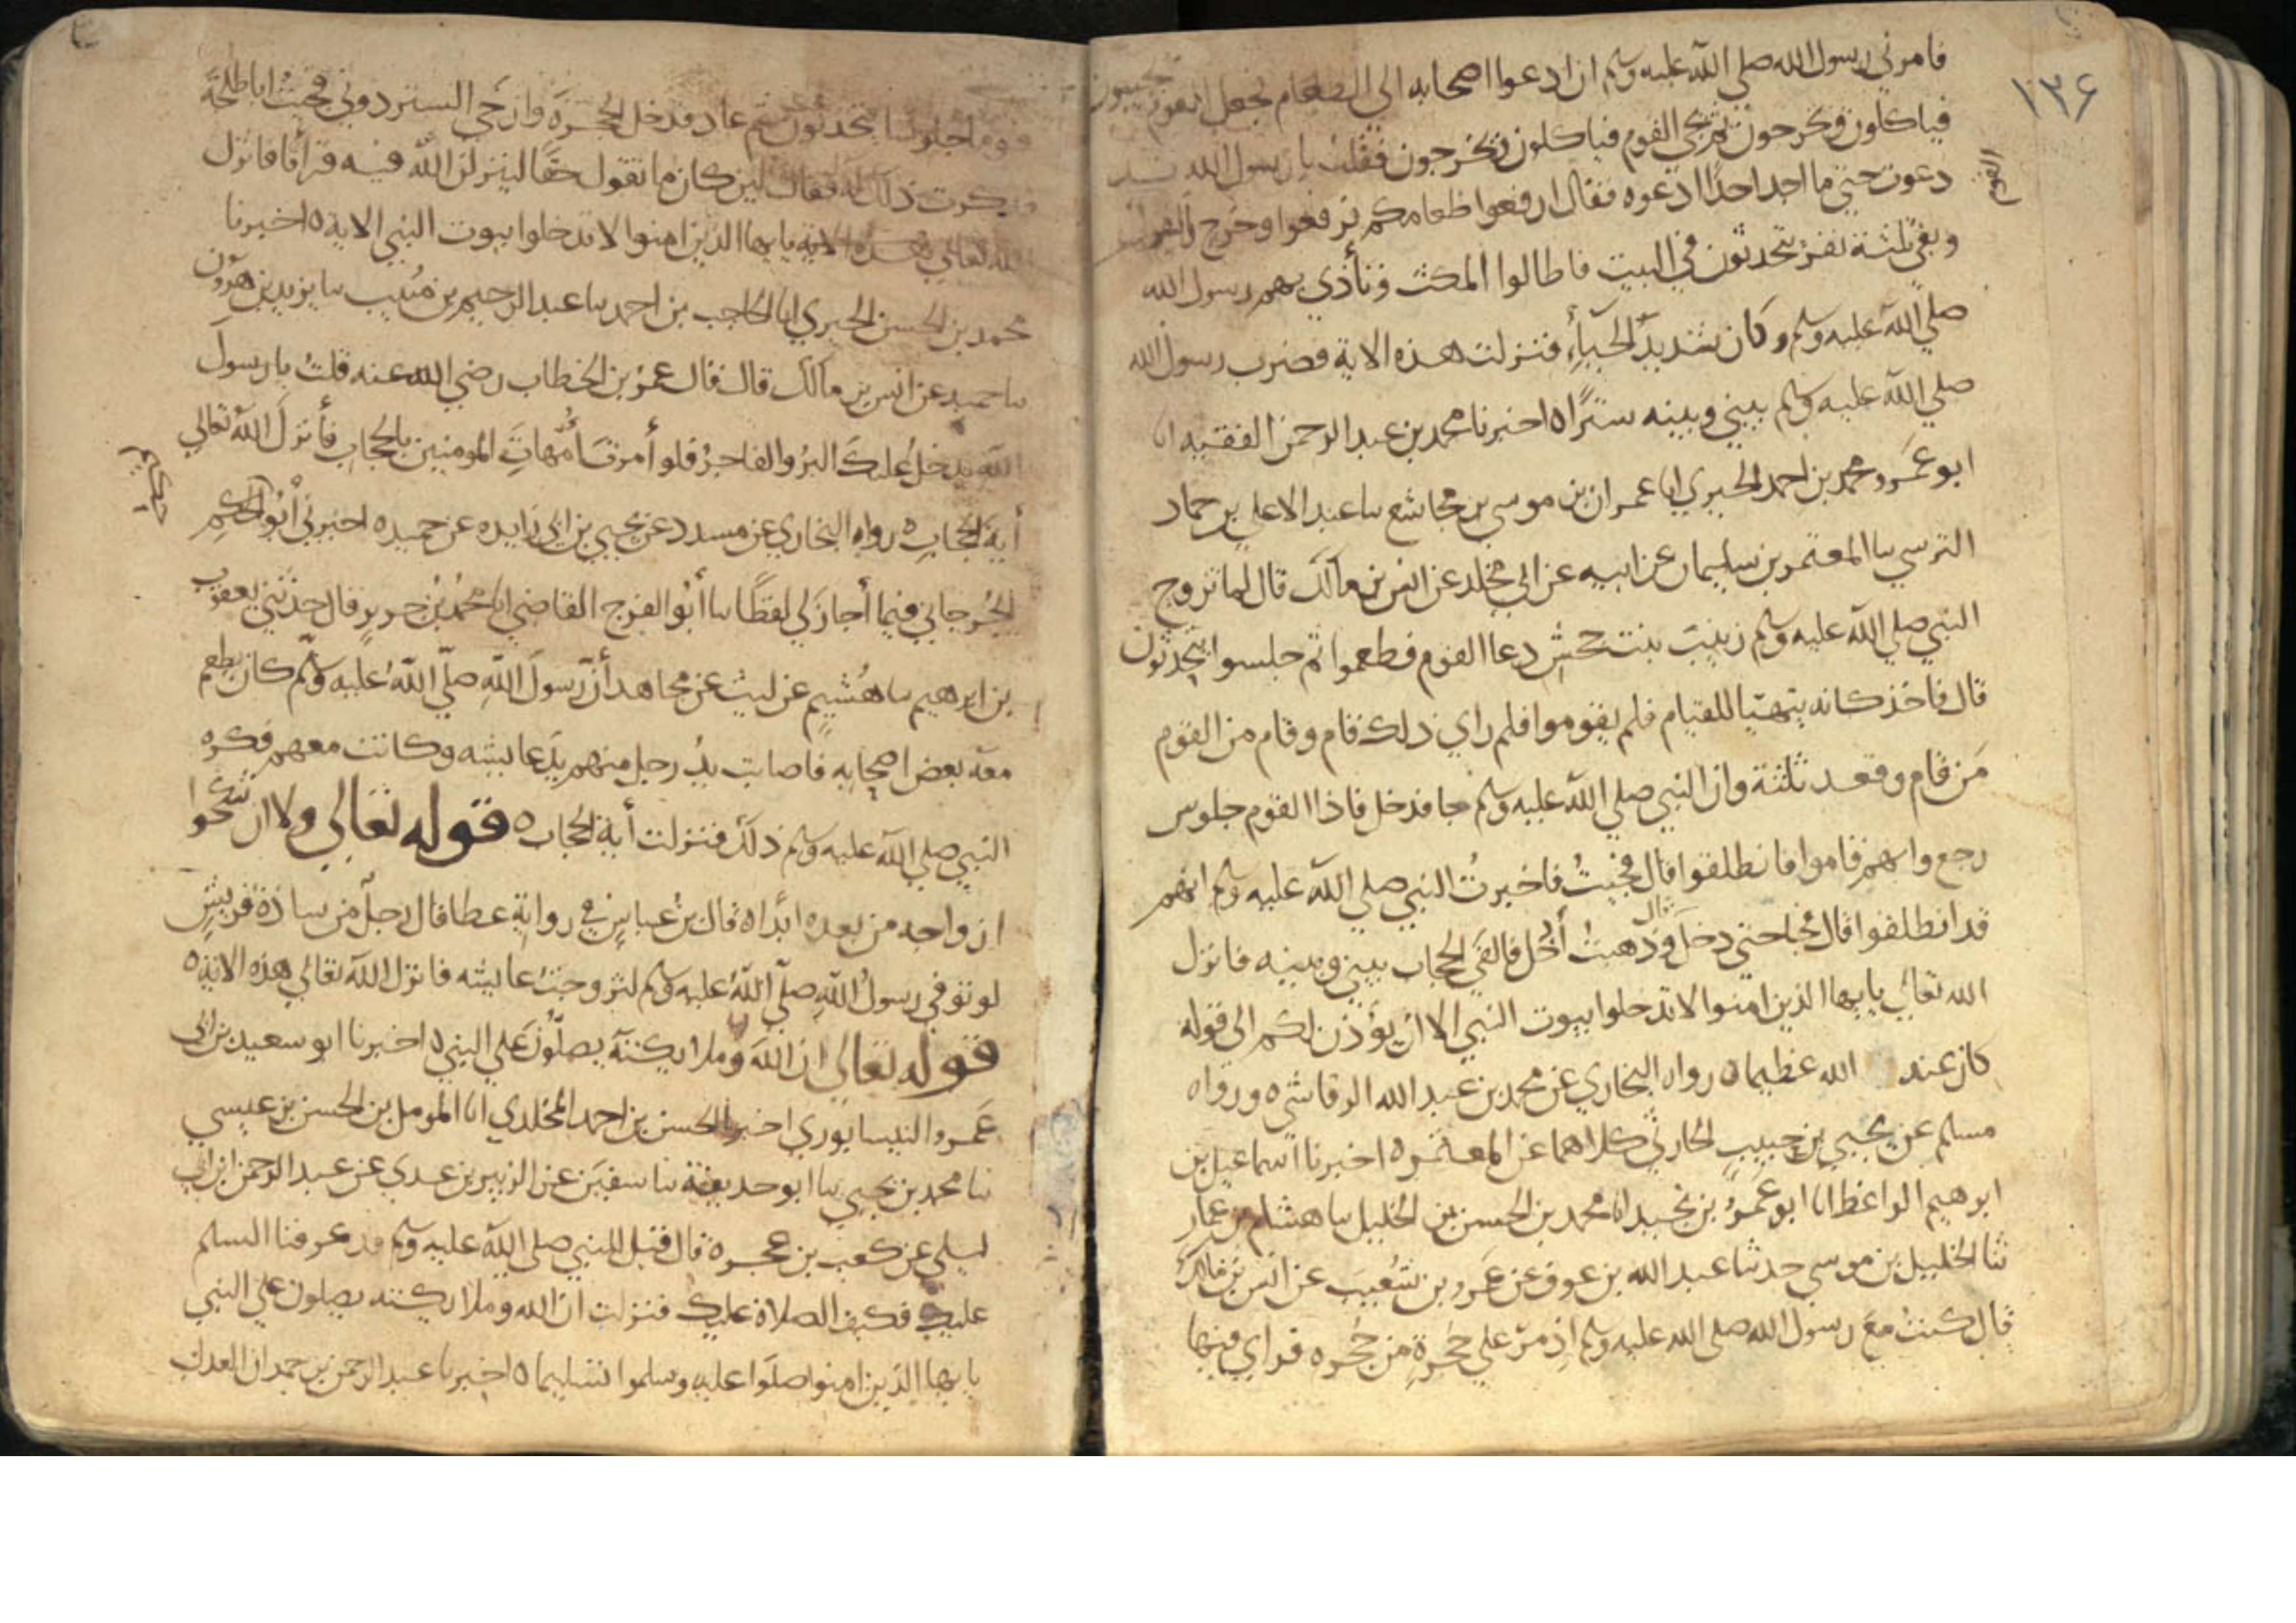 ١٣٦
فامرني رسول الله صلى الله عليه وسلم ان ادعوا اصحابه الى الطعام فجعل القوم يجيبون
فياكلون فيخرجون ثم يجي القوم فياكلون فيخرجون فقلت يا رسول الله قد
القوم
دعوت حتى ما اجد احدا ادعوه فقال ارفعوا طعامكم فرفعوا وخرج القوم
وبقي ثلثة نفر يتحدثون في البيت فاطالوا المكث فتأذى بهم رسول الله
صلى الله عليه وسلم وكان شديد الحياء فنزلت هذه الاية فضرب رسول الله
صلى الله عليه وسلم بيني وبينه سترا ه اخبرنا محمد بن عبد الرحمن الفقيه انا
ابو عمرو محمد بن احمد الحيري انا عمران بن موسى بن مجاشع سا عبد الاعلى بن حماد
النرسي سا المعتمر بن سليمان عن ابيه عن ابي مجلد عن انس بن مالك قال لما تزوج
النبي صلى الله عليه وسلم زينب بنت جحش دعا القوم فطعموا ثم جلسوا يتحدثون
قال فاخذ كانه يتهيا للقيام فلم يقوموا فلم راي ذلك قام وقام من القوم
من قام وقعد ثلثة وان النبي صلى الله عليه وسلم جا فدخل فاذا القوم جلوس
رجع وانهم قاموا فانطلقوا قال فجيت فاخبرت النبي صلى الله عليه وسلم انهم
قد انطلقوا قال فجا حتى دخل قال وذهبت أدخل فالقى الحجاب بيني وبينه فانزل
الله تعالى يايها الذين امنوا لا تدخلوا بيوت النبي الا ان يؤذن لكم الى قوله
كان عند الله عظيما ه رواه البخاري عن محمد بن عبد الله الرقاشي ه ورواه
مسلم عن يحيى بن حبيب الحارثي كلاهما عن المعتمر ه اخبرنا اسماعيل بن
ابرهيم الواعظ انا ابو عمرو بن نجيد انا محمد بن الحسن بن الخليل سا هشام بن عمار
ثنا الخليل بن موسى حدثنا عبد الله بن عوف عن عمرو بن شعيب عن انس بن مالك
قال كنت مع رسول الله صلى الله عليه وسلم اذ مر على حجرة من حجره فراي فيها
قوما جلوسا يتحدثون ثم عاد فدخل الحجرة وارخى الستر دوني فجيت ابا طلحة
فذكرت ذلك له فقال لين كان ما تقول حقا لينزلن الله فيه قرأنا فانزل
الله تعالى هذه الاية يايها الذين امنوا لا تدخلوا بيوت النبي الاية ه اخبرنا
محمد بن الحسن الحيري انا الحاجب بن احمد سا عبد الرحيم بن منيب سا يزيد بن هرون
سا حميد عن انس بن مالك قال قال عمر بن الخطاب رضي الله عنه قلت يا رسول
الله يدخل عليك البر والفاجر فلو أمرت أمهات المومنين بالحجاب فأنزل الله تعالى
أية الحجاب ه رواه البخاري عن مسدد عن يحيى بن ابي زايده عن حميد ه اخبرني أبو الحكيم
الجرجاني فيما أجاز لي لفظا سا أبو الفرج القاضي انا محمد بن جرير قال حدثني يعقوب
بن ابرهيم سا هشيم عن ليث عن مجاهد أن رسول الله صلى الله عليه وسلم كان يطعم
معه بعض اصحابه فاصابت يد رجل منهم يد عايشه وكانت معهم فكره
النبي صلى الله عليه وسلم ذلك فنزلت أية الحجاب ه قوله تعالى ولا ان تنكحوا
ازواجه من بعده ابدا ه قال بن عباس في رواية عطا قال رجل من سادة قريش
لو توفي رسول الله صلى الله عليه وسلم لتزوجت عايشه فانزل الله تعالى هذه الاية ه
قوله تعالى ان الله وملايكته يصلون على النبي ه اخبرنا ابو سعيد بن ابي
عمرو النيسابوري اخبرنا الحسن بن احمد المخلدي انا المومل بن الحسن بن عيسى
سا محمد بن يحيى سا ابو حذيفة سا سفين عن الزبير بن عدي عن عبد الرحمن ابن ابي
ليلى عن كعب بن عجره قال قيل للنبي صلى الله عليه وسلم قد عرفنا السلم
عليك فكيف الصلاة عليك فنزلت ان الله وملايكته يصلون على النبي
يايها الذين امنوا صلوا عليه وسلموا تسليما ه اخبرنا عبد الرحمن بن حمدان العدل